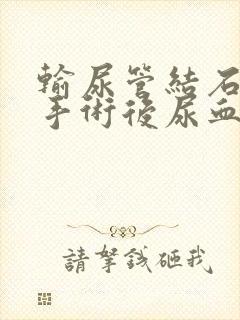 輸尿管結石
手術後尿血
請拏錢砸我